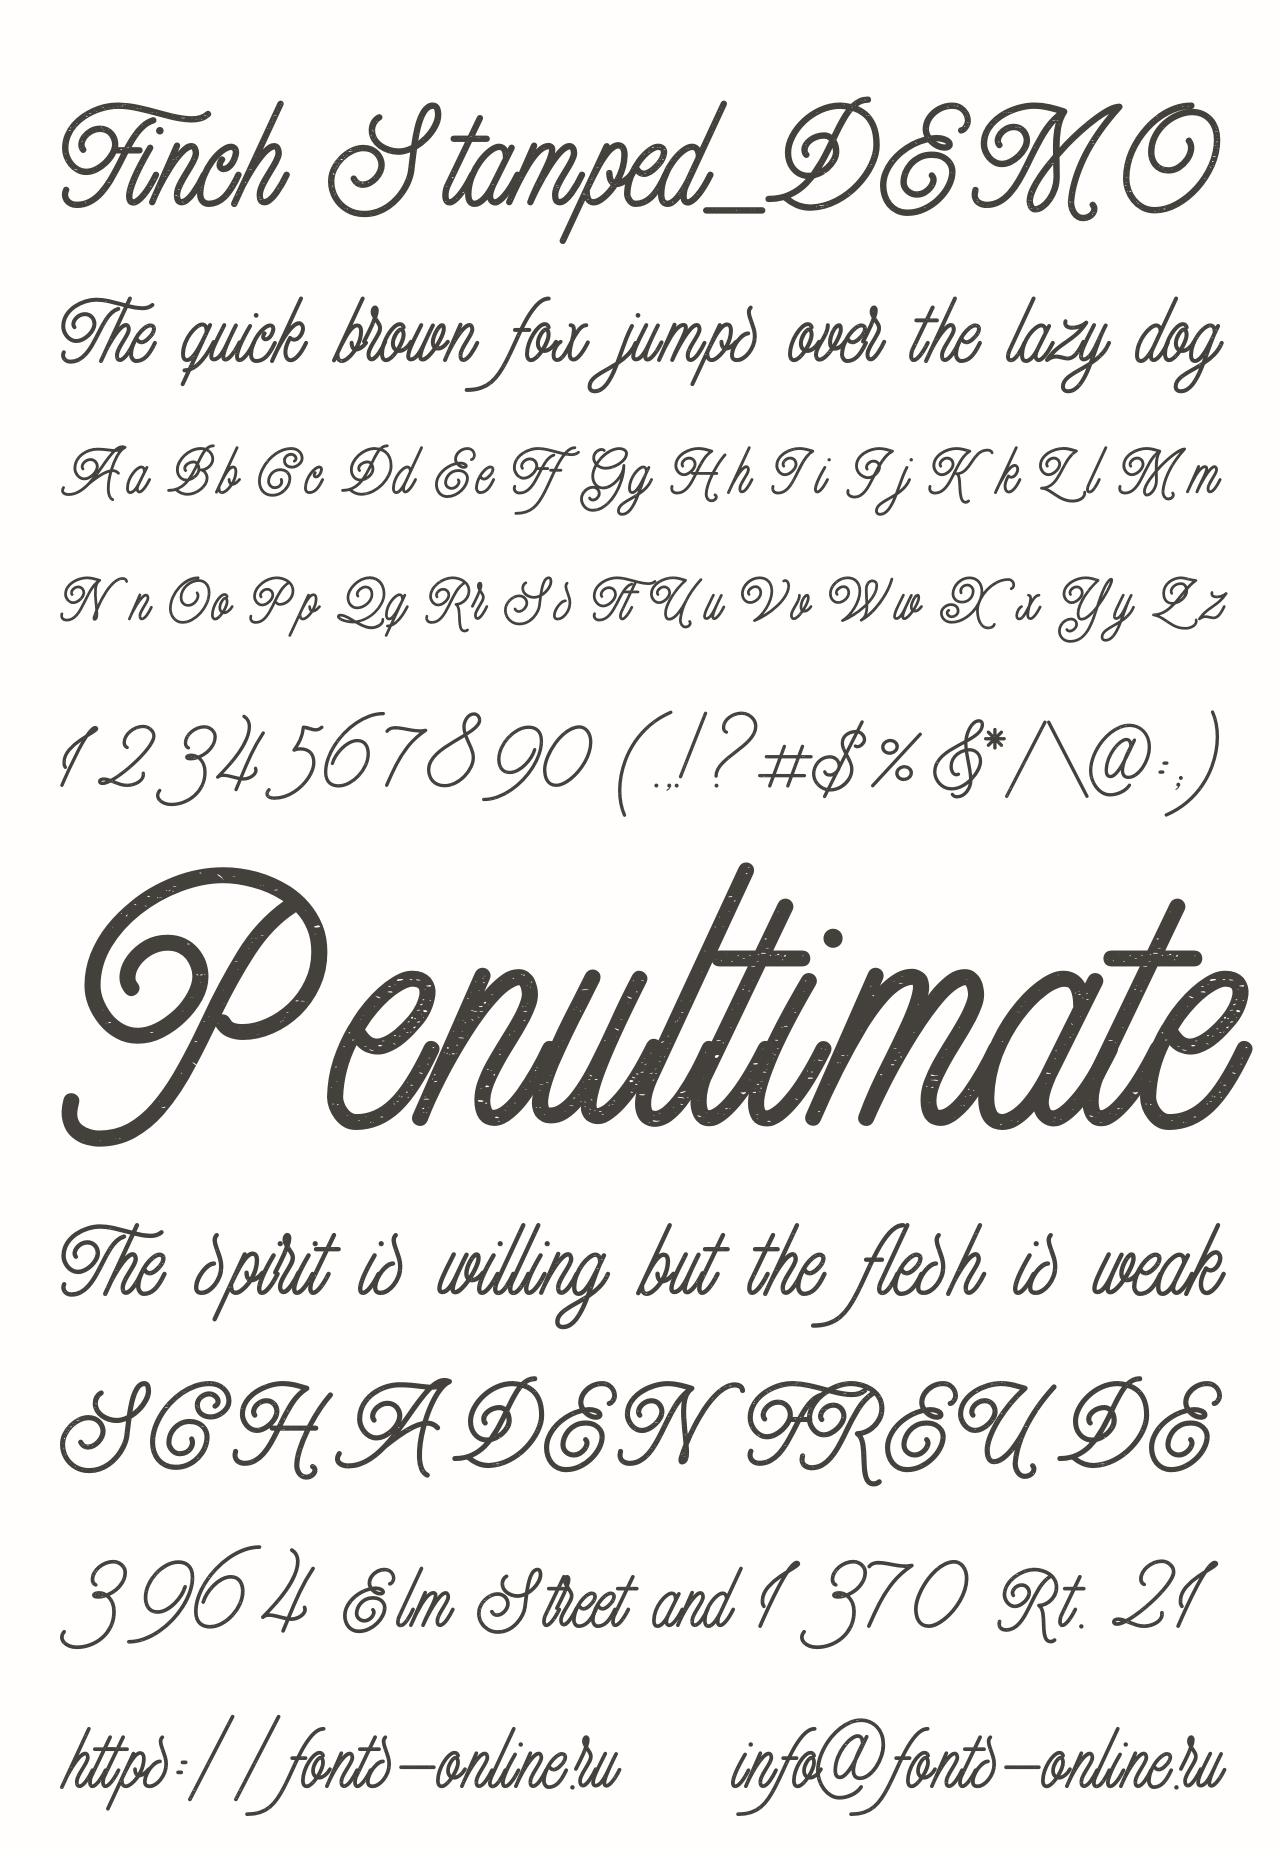 Finch Stamped_DEMO
The quick brown fox jumps over the lazy dog
Aa Bb Cc Dd Ee Ff Gg Hh Ii Jj Kk Ll Mm
Nn Oo Pp Qq Rr Ss Tt Uu Vv Ww Xx Yy Zz
1234567890 (.,!?#$%&*/\@:;)
Penultimate
The spirit is willing but the flesh is weak
SCHADENFREUDE
3964 Elm Street and 1370 Rt. 21
https://fonts-online.ru info@fonts-online.ru